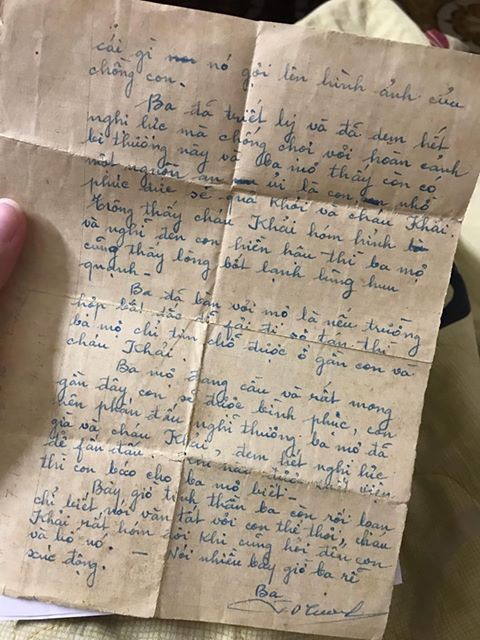 cái gì nó gợi lên hình ảnh của
chồng con.
Ba đã triết lý và đã đem hết
nghị lực mà chống chọi với hoàn cảnh
bi thương này và ba mợ thấy còn có
một nguồn an ủi là con nhỏ
phúc sẽ mà Khởi và cháu Khải.
Trông thấy cháu Khải hóm hỉnh
và nghĩ đến con hiền hậu thì ba mợ
cũng thấy lòng bớt lạnh lùng hưu
quạnh –
Ba đã bàn với mợ là nếu trường
hợp bất đắc dĩ fải đi sơ tán thì
ba mợ chỉ tìm chỗ được ở gần con và
cháu Khải.
Ba mợ đang cầu và rất mong
gần đây con sẽ được bình phục, con
nên phấn đấu nghĩ thương ba mợ đã
già và cháu Khải, đem hết nghị lực
để fấn đấu
thì con báo cho ba mợ biết –
Bây giờ tinh thần ba còn rối loạn
chỉ biết nói vắn tắt với con thế thôi, cháu
Khải rất hóm đôi khi cũng hỏi đến con
và bố nó. – Nói nhiều bây giờ ba rễ
xúc động.
Ba